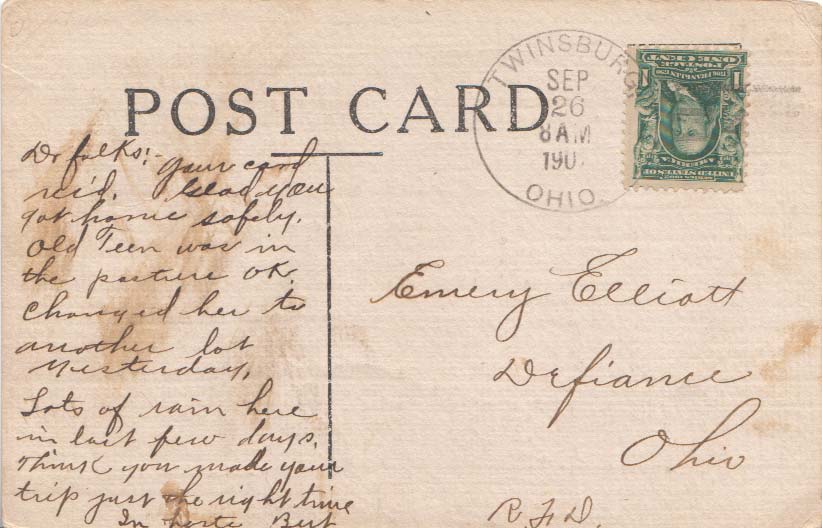 POST CARD
TWINSBURG
SEP
26
8 AM
190
OHIO.
ONE CENT
POSTAGE
1 1
UNITED STATES OF
AMERICA
Dr folks:- your card
rec'd. Glad you
got home safely.
Old Teen was in
the pasture OK.
Changed her to
another lot
yesterday.
Lots of rain here
in last few days.
Think you made your
trip just the right time
In haste Bert
Emery Elliott
Defiance
Ohio
R.F.D.